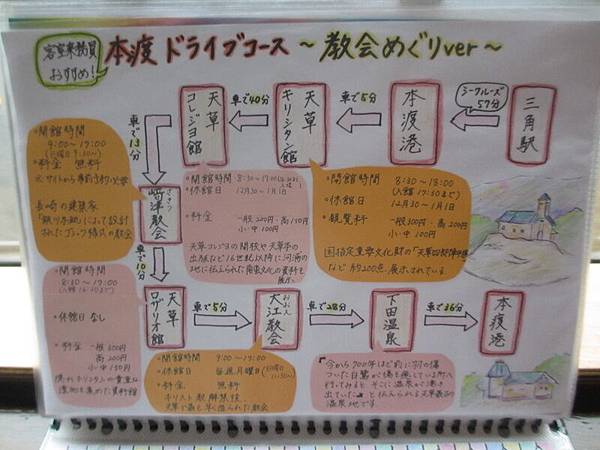 客室乗務員
おすすめ!
本渡ドライブコース ~教会めぐりver~
三角駅
シークルーズ
57分
本渡港
車で5分
天草
キリシタン館
車で40分
天草
コレジヨ館
車で13分
・開館時間
8:30~18:00
(入館 17:30まで)
・休館日
12月30~1月1日
・観覧料
一般300円・高200円
小・中 150円
国指定重要文化財の「天草四郎陣中旗」
など約200点展示されている
・開館時間 8:30~17:00
・休館日
12月30~1月1日
・料金
一般200円・高150円
小・中100円
天草コレジヨの開校や天草本の
出版など16世紀以降に河浦の
地に伝えられた南蛮文化の資料を
展示
・開館時間
9:00~17:00
(日曜日9:30~)
・料金 無料
長崎の建築家
「鉄川与助」によって設計
されたゴシック様式の教会
さきつ
﨑津教会
車で10分
天草
ロザリオ館
車で5分
おおえ
大江教会
車で28分
下田温泉
車で36分
本渡港
・開館時間
8:30~17:00
・休館日 なし
・料金 一般300円
高200円
小・中150円
隠れキリシタンの貴重な
遺物を集めた資料館
・開館時間 9:00~17:00
・休館日 毎週月曜日
・料金 無料
キリスト教解禁後、
天草で最も早く造られた教会
今から700年ほど前に羽の傷
ついた白鷺が傷を癒している所へ
行ってみると、そこに温泉が湧き
出ていた。と伝えられる天草最古の
温泉地です。